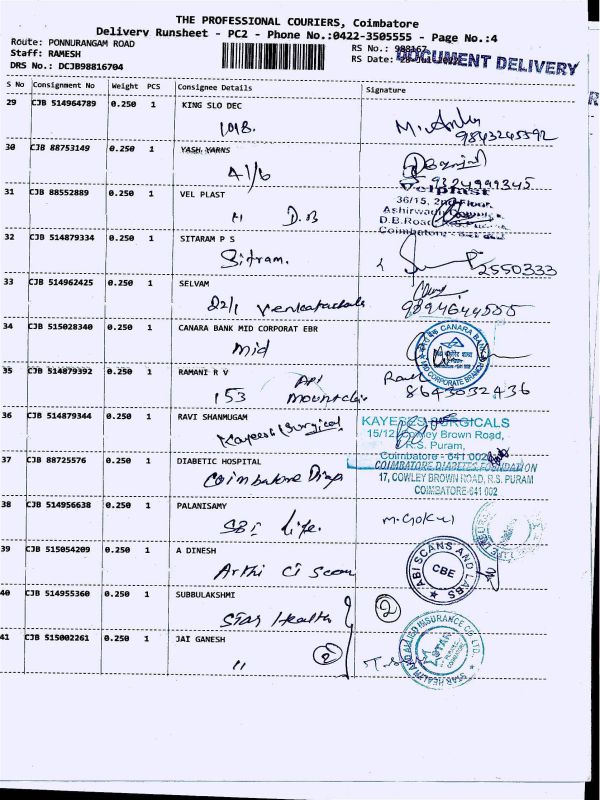 THE PROFESSIONAL COURIERS, Coimbatore
Delivery Runsheet - PC2 - Phone No.:0422-3505555 - Page No.:4
Route: PONNURANGAM ROAD
Staff: RAMESH
DRS No.: DCJB98816704
RS No.: 988167
RS Date:
DOCUMENT DELIVERY
S No Consignment No Weight PCS Consignee Details Signature
29 CJB 514964789 0.250 1 KING SLO DEC
1018.
9843245592
30 CJB 88753149 0.250 1 YASH YARNS
A1/6
9324999345
31 CJB 88552889 0.250 1 VEL PLAST
11 D.B
Velplast
36/15, 2nd Floor,
Ashirwad
D.B.Road, R.S. Puram
Coimbatore
32 CJB 514879334 0.250 1 SITARAM P S
Sitram.
2550333
33 CJB 514962425 0.250 1 SELVAM
22/1 Venkatachala
9894644555
34 CJB 515028340 0.250 1 CANARA BANK MID CORPORAT EBR
Mid
CANARA BANK
MID CORPORATE BRANCH
35 CJB 514879392 0.250 1 RAMANI R V
153
8643032436
36 CJB 514879344 0.250 1 RAVI SHANMUGAM
Kayees Surgical
KAYEEES SURGICALS
15/12 Cowley Brown Road,
R.S. Puram,
Coimbatore - 641 002
37 CJB 88725576 0.250 1 DIABETIC HOSPITAL
Coimbatore Diap
COIMBATORE DIABETES FOUNDATION
17, COWLEY BROWN ROAD, R.S. PURAM
COIMBATORE-641 002
38 CJB 514956638 0.250 1 PALANISAMY
SBI Life.
M.Gokul
39 CJB 515054209 0.250 1 A DINESH
Arthi Ci Scan
ABI SCANS AND LABS
CBE
40 CJB 514955360 0.250 1 SUBBULAKSHMI
Star Health
2
41 CJB 515002261 0.250 1 JAI GANESH
11
2
STAR HEALTH AND ALLIED INSURANCE CO. LTD.
STAR